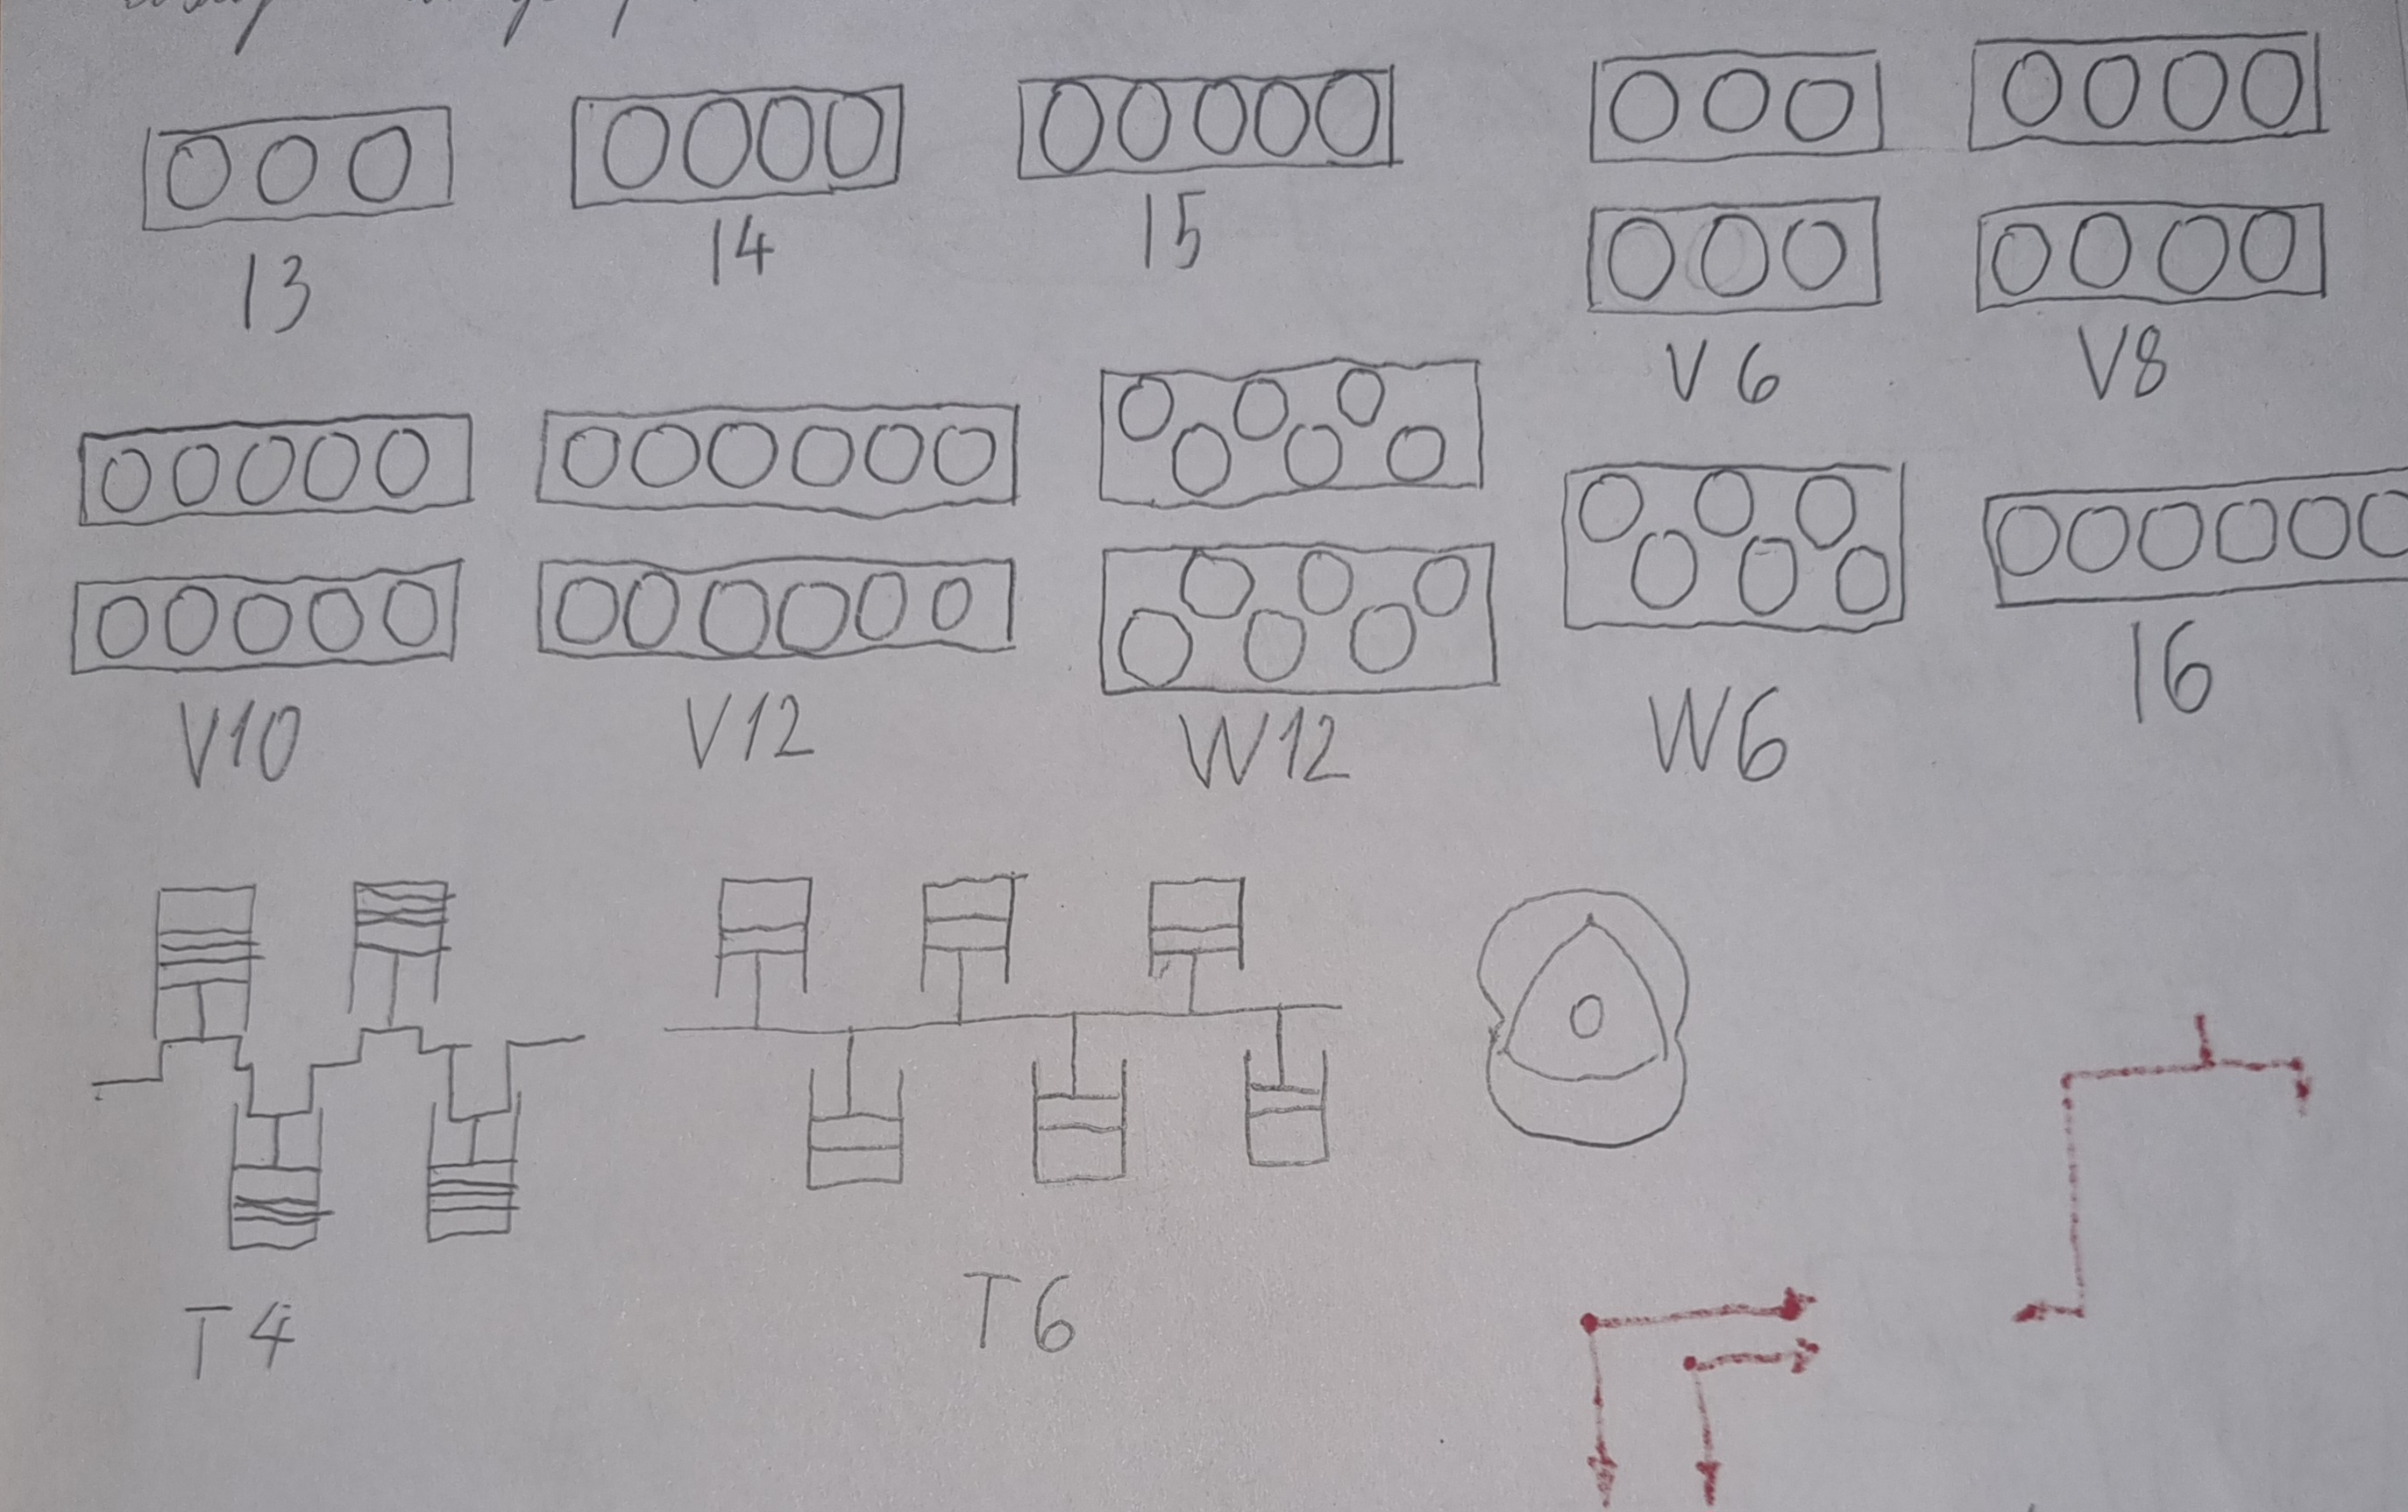 I3 I4 I5
V6 V8
V10 V12 W12 W6 I6
T4 T6